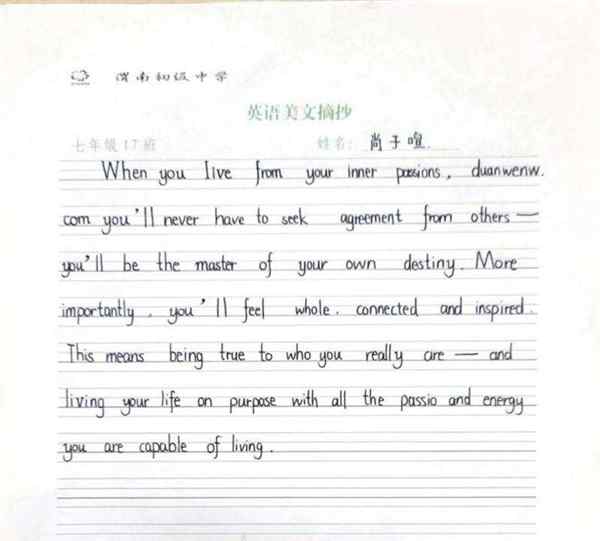 渭南初级中学
英语美文摘抄
七年级17班 姓名: 尚子喧
When you live from your inner passions, duanwenw.
com you'll never have to seek agreement from others—
you'll be the master of your own destiny. More
importantly, you'll feel whole, connected and inspired.
This means being true to who you really are — and
living your life on purpose with all the passio and energy
you are capable of living.